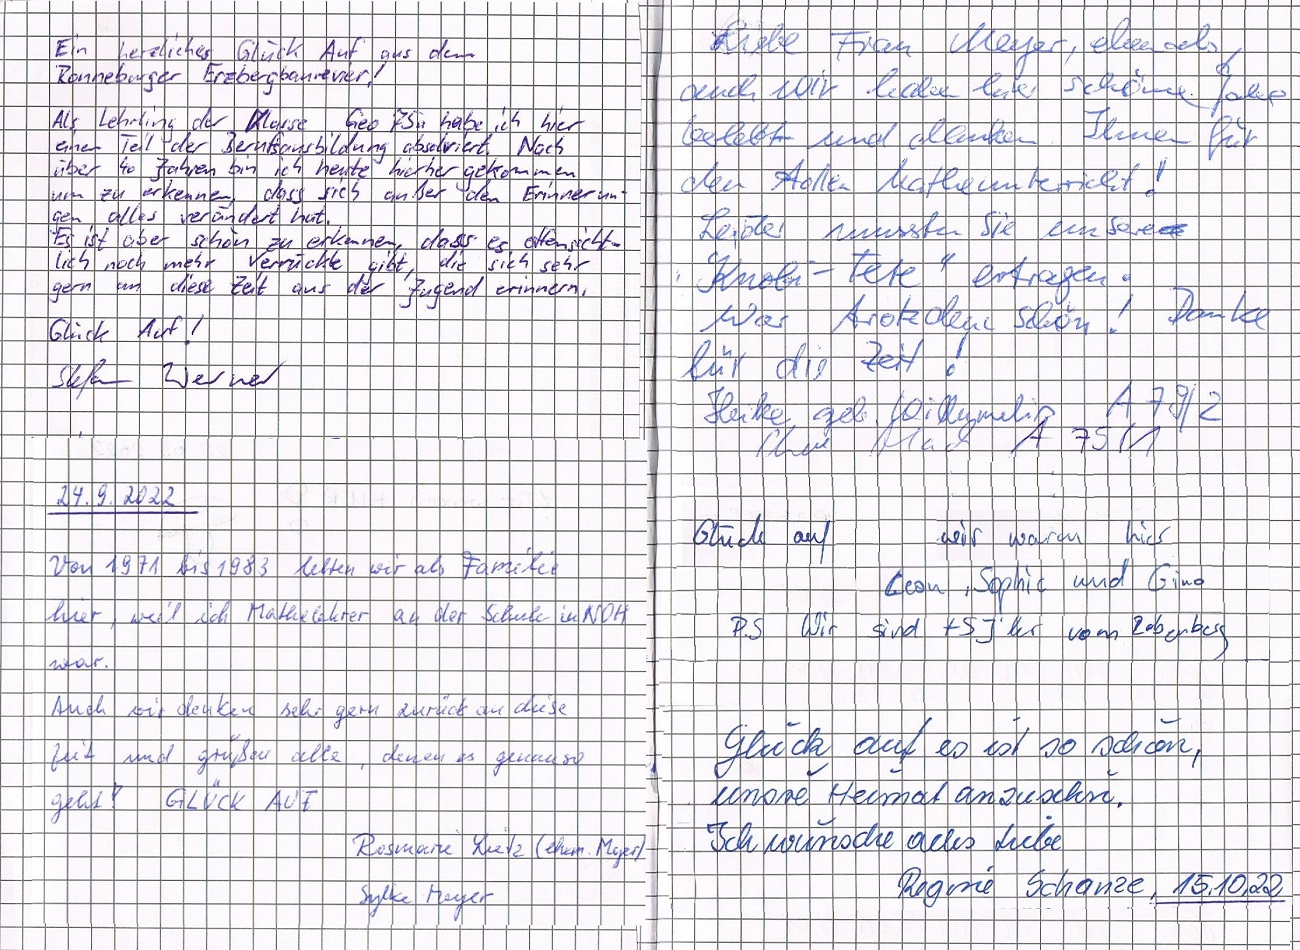 Ein herzliches Glück Auf aus dem
Ronneburger Erzbergbaurevier!
Als Lehrling der Klasse Geo 75ü habe ich hier
einen Teil der Berufsausbildung absolviert. Nach
über 40 Jahren bin ich heute hierher gekommen
um zu erkennen, dass sich außer den Erinnerun-
gen alles verändert hat.
Es ist aber schön zu erkennen, dass es offensicht-
lich noch mehr Verrückte gibt, die sich sehr
gern an diese Zeit aus der Jugend erinnern.
Glück Auf!
Stefan Werner
24.9.2022
Von 1971 bis 1983 lebten wir als Familie
hier, weil ich Mathelehrer an der Schule in NDH
war.
Auch wir denken sehr gern zurück an diese
Zeit und grüßen alle, denen es genauso
geht! GLÜCK AUF
Rosmarie Lietz (ehem. Meyer)
Sylke Meyer
Liebe Frau Meyer, ebenfalls
auch wir haben hier schöne Jahre
gelebt und danken Ihnen für
den tollen Matheunterricht!
Leider mussten Sie unsere
"Knobi-Fete" ertragen.
War trotzdem schön! Danke
für die Zeit!
Heike geb. A 79/2
A 75/1
Glück auf wir waren hier
Leon, Sophie und Gino
P.S Wir sind vom Zabenberg
Glück auf es ist so schön,
unsre Heimat anzusehn.
Ich wünsche alles Liebe
Regine Schanze, 15.10.22